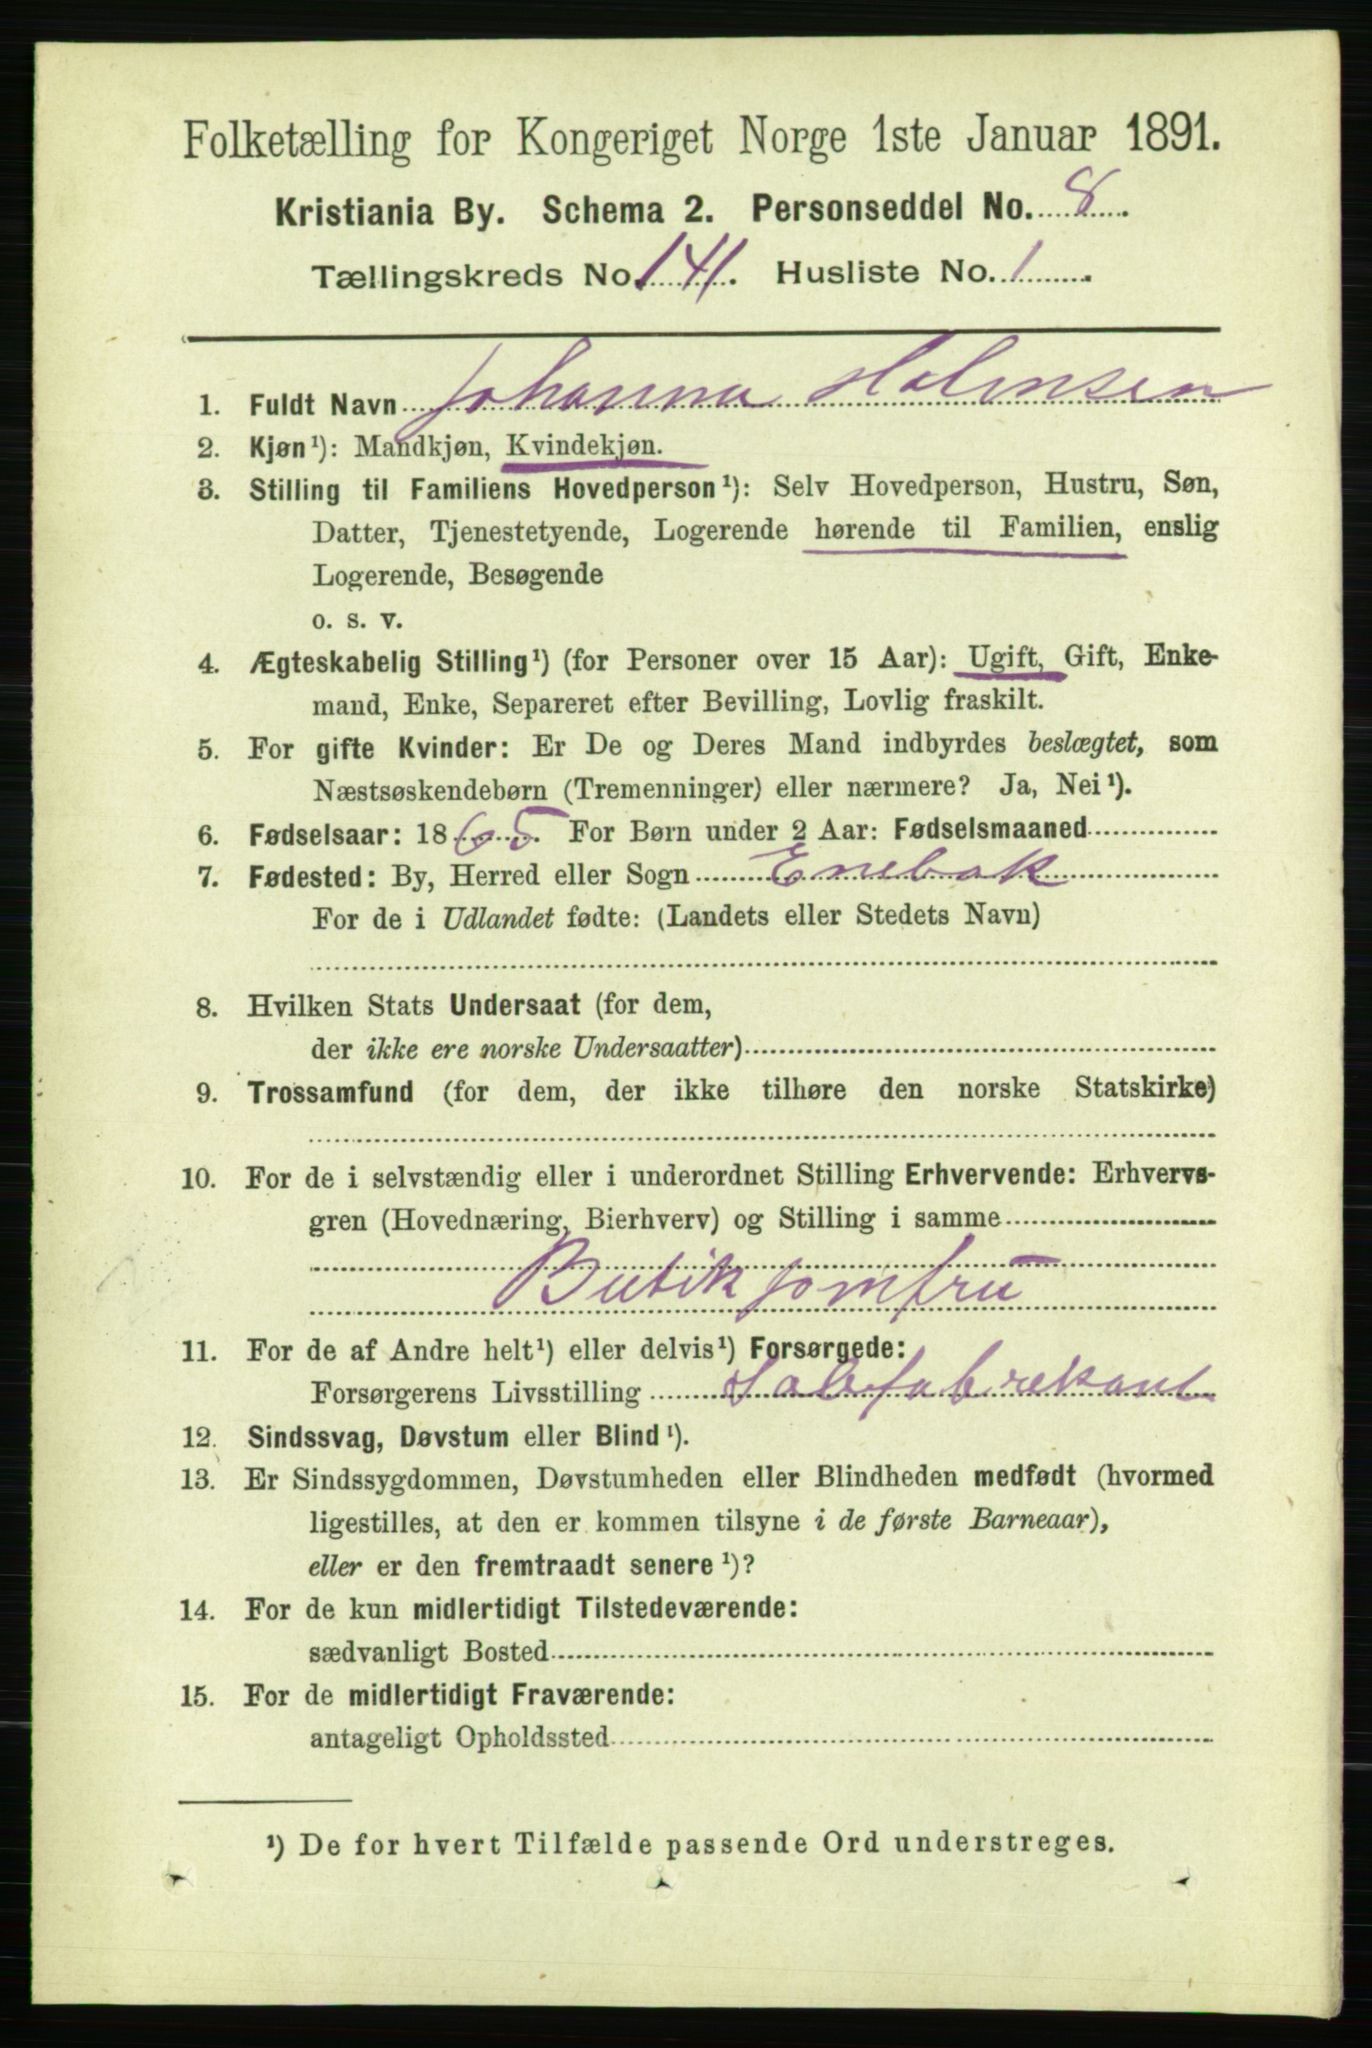 Folketælling for Kongeriget Norge 1ste Januar 1891.
Kristiania By. Schema 2. Personseddel No. 8.
Tællingskreds No. 141. Husliste No. 1.
1. Fuldt Navn Johanna Holmsen
2. Kjøn¹): Mandkjøn, Kvindekjøn.
3. Stilling til Familiens Hovedperson¹): Selv Hovedperson, Hustru, Søn,
Datter, Tjenestetyende, Logerende hørende til Familien, enslig
Logerende, Besøgende
o. s. v.
4. Ægteskabelig Stilling¹) (for Personer over 15 Aar): Ugift, Gift, Enke-
mand, Enke, Separeret efter Bevilling, Lovlig fraskilt.
5. For gifte Kvinder: Er De og Deres Mand indbyrdes beslægtet, som
Næstsøskendebørn (Tremenninger) eller nærmere? Ja, Nei¹).
6. Fødselsaar: 1865. For Børn under 2 Aar: Fødselsmaaned
7. Fødested: By, Herred eller Sogn Enebak
For de i Udlandet fødte: (Landets eller Stedets Navn)
8. Hvilken Stats Undersaat (for dem,
der ikke ere norske Undersaatter)
9. Trossamfund (for dem, der ikke tilhøre den norske Statskirke)
10. For de i selvstændig eller i underordnet Stilling Erhvervende: Erhvervs-
gren (Hovednæring, Bierhverv) og Stilling i samme
Butikjomfru
11. For de af Andre helt¹) eller delvis¹) Forsørgede:
Forsørgerens Livsstilling
12. Sindssvag, Døvstum eller Blind¹).
13. Er Sindssygdommen, Døvstumheden eller Blindheden medfødt (hvormed
ligestilles, at den er kommen tilsyne i de første Barneaar),
eller er den fremtraadt senere¹)?
14. For de kun midlertidigt Tilstedeværende:
sædvanligt Bosted
15. For de midlertidigt Fraværende:
antageligt Opholdssted
¹) De for hvert Tilfælde passende Ord understreges.